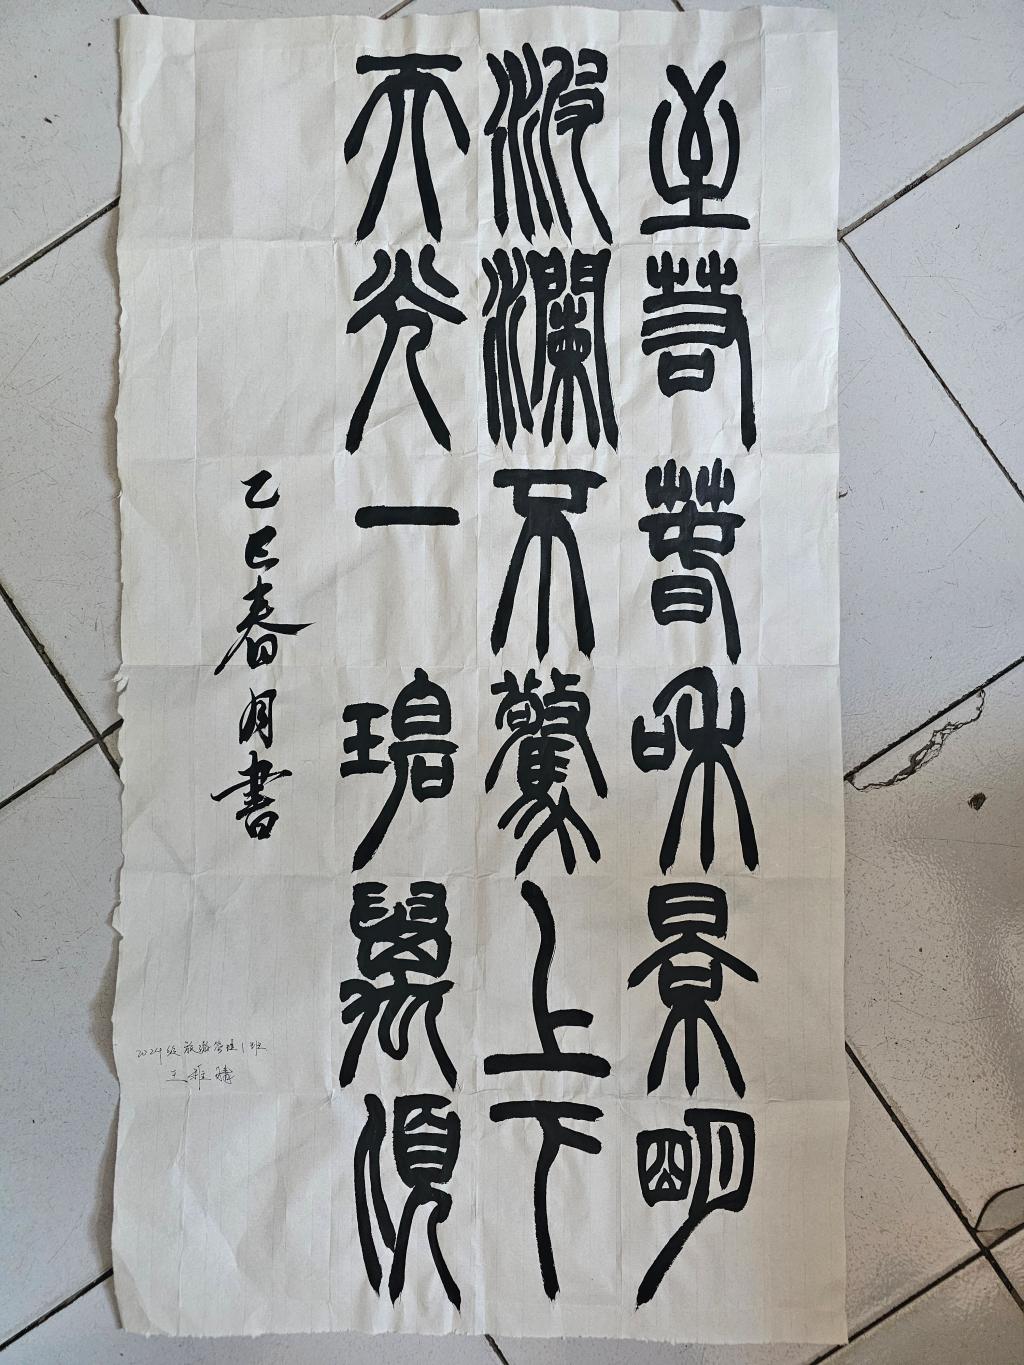 至若春和景明
波瀾不驚上下
天光一碧萬頃
乙巳春月書
2024级旅游管理1班
王雅晴